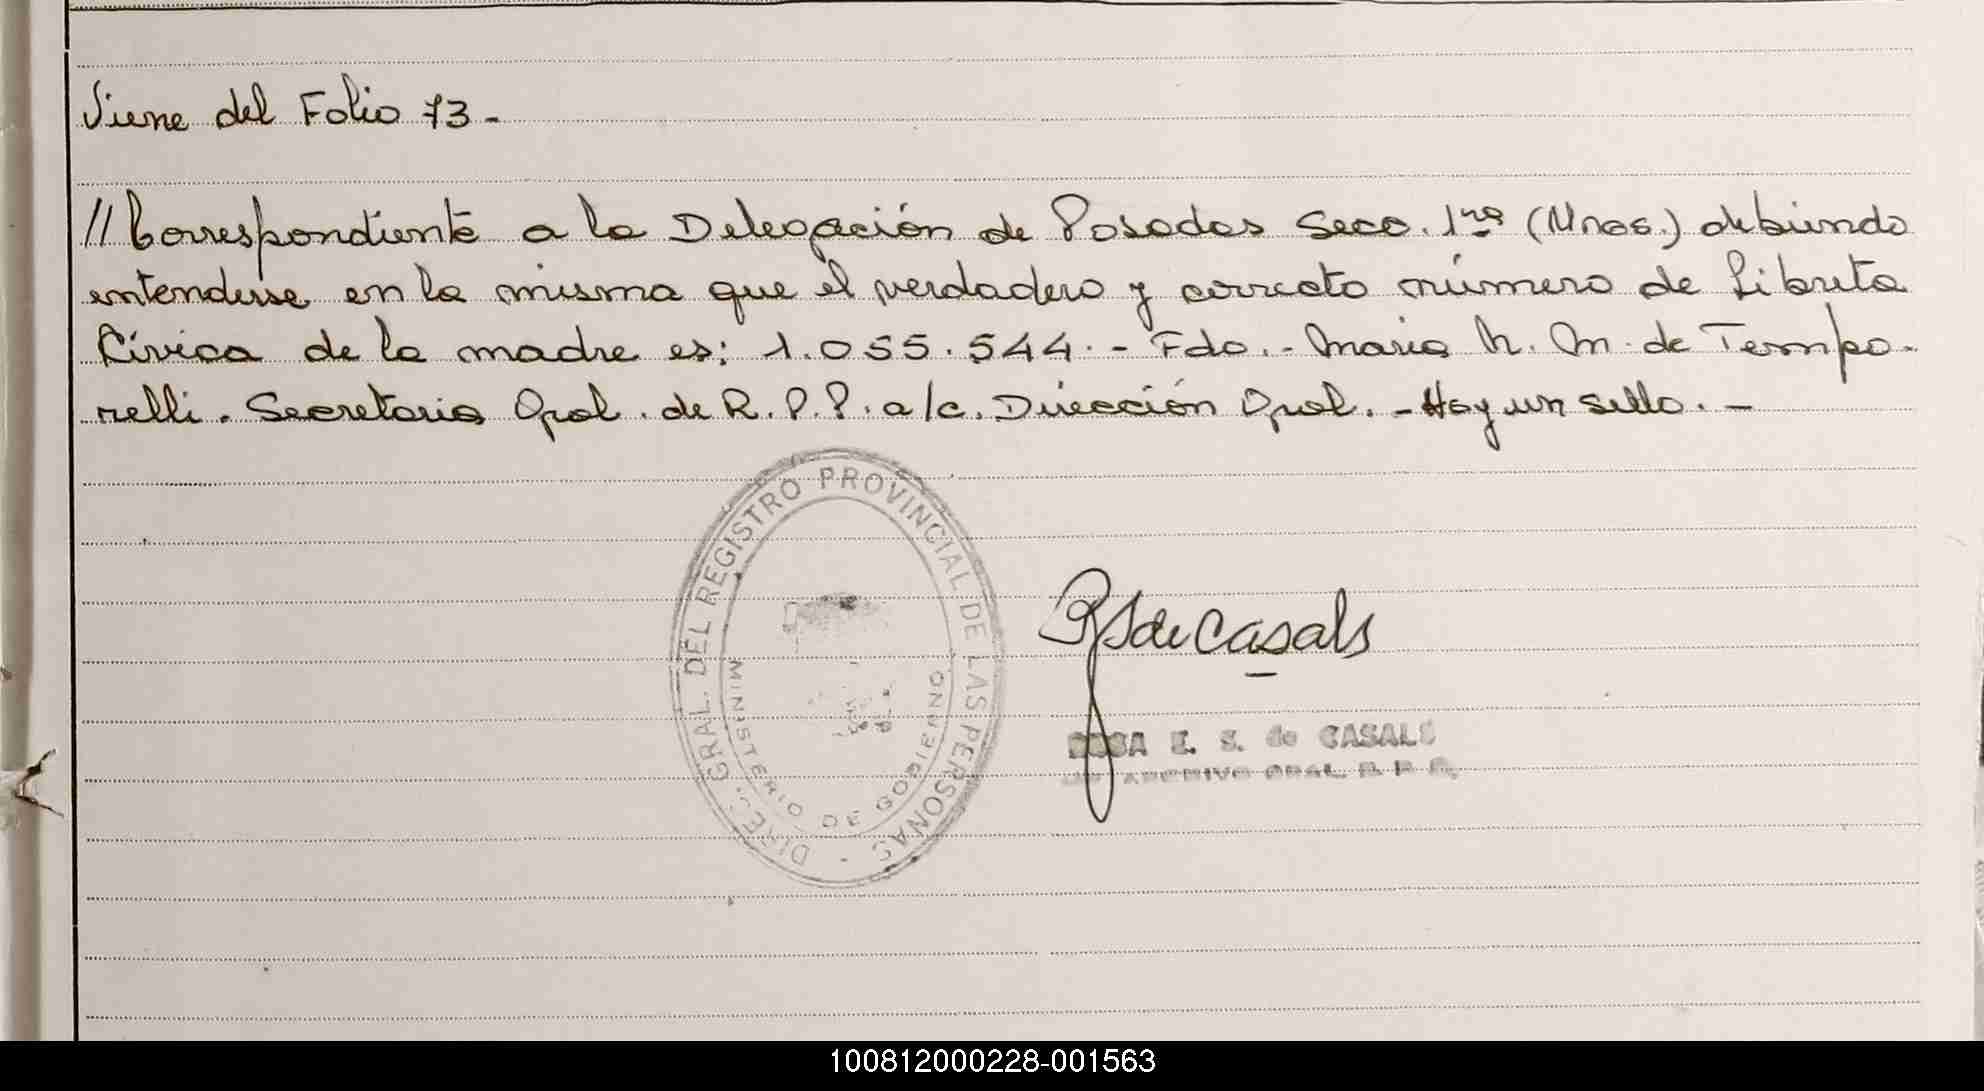 Viene del Folio 73.-
// Correspondiente a la Delegación de Posadas Secc. 1ra (Mnes.) debiendo
entenderse en la misma que el verdadero y correcto número de Libreta
Cívica de la madre es: 1.055.544.- Fdo.- Maria N. M. de Tempo-
relli. Secretaria Gral. de R.P.P. a/c. Dirección Gral.- Hay un sello.-
DIREC. GRAL. DEL REGISTRO PROVINCIAL DE LAS PERSONAS -
MINISTERIO DE GOBIERNO
RS de Casals
ROSA E. S. de CASALS
ARCHIVO GRAL. R. P. P.
100812000228-001563